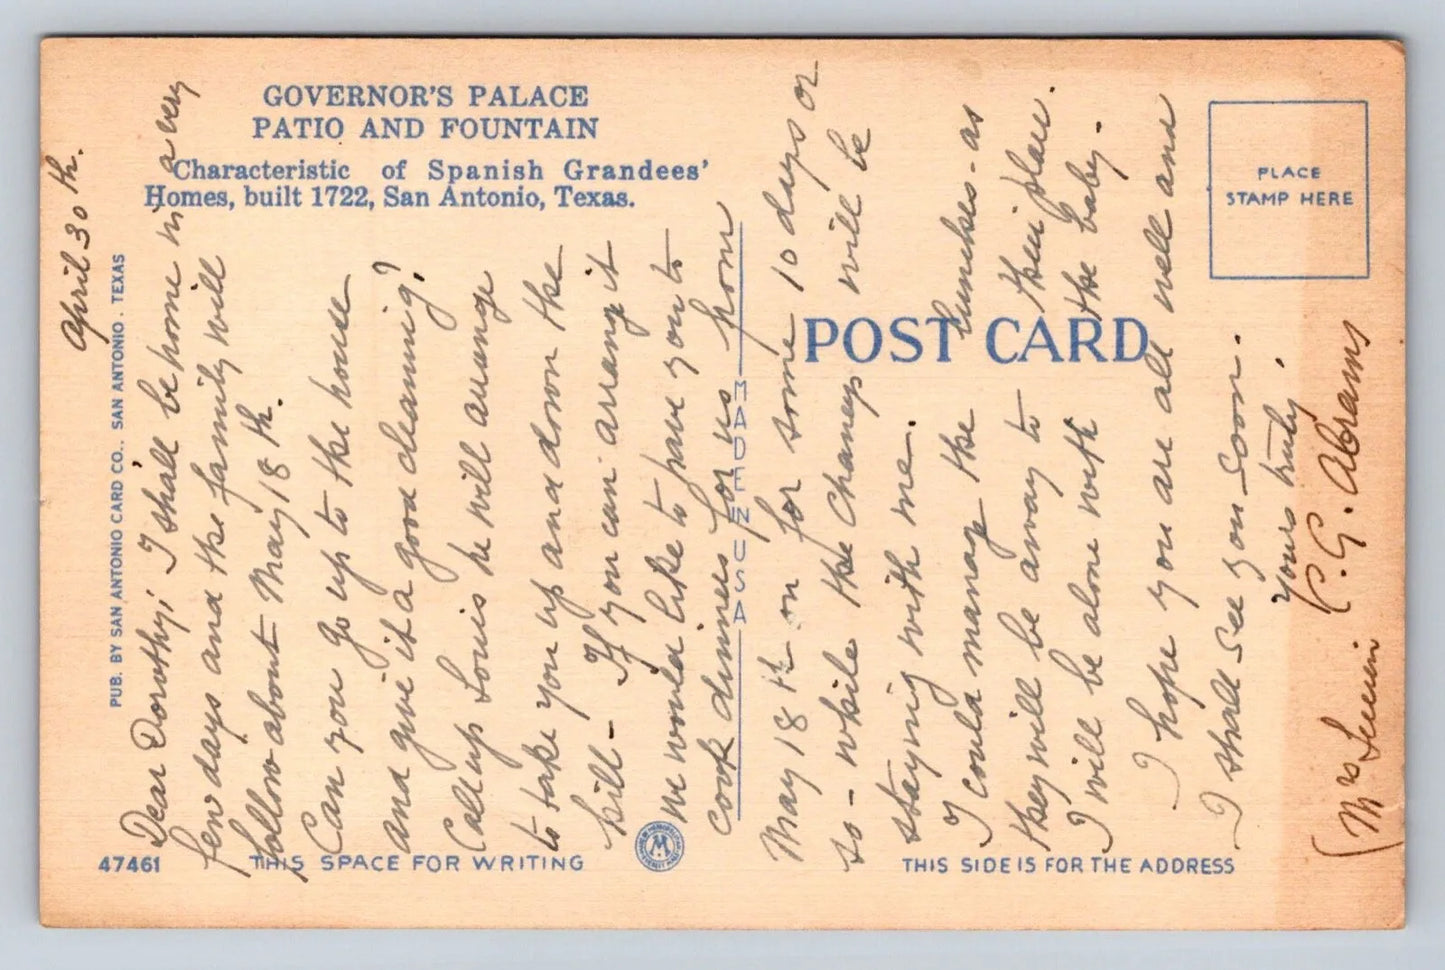 GOVERNOR'S PALACE
PATIO AND FOUNTAIN
Characteristic of Spanish Grandees'
Homes, built 1722, San Antonio, Texas.
PUB. BY SAN ANTONIO CARD CO., SAN ANTONIO, TEXAS
April 30 th.
Dear Dorothy; I shall be home in a very
few days and the family will
follow about May 18 th.
Can you go up to the house
and give it a good cleaning?
Call up Louis he will arrange
to take you up and down the
hill - If you can arrange it
we would like to have you to
cook dinners for us from
MADE IN U S A
POST CARD
PLACE
STAMP HERE
May 18 th on for some 10 days or
so - while the Chaneys will be
staying with me.
I could manage the lunches - as
they will be away to their place.
I will be alone with the baby.
I hope you are all well and
I shall see you soon.
Yours truly,
C. G. Abrams
(Mrs
47461
THIS SPACE FOR WRITING
THIS SIDE IS FOR THE ADDRESS